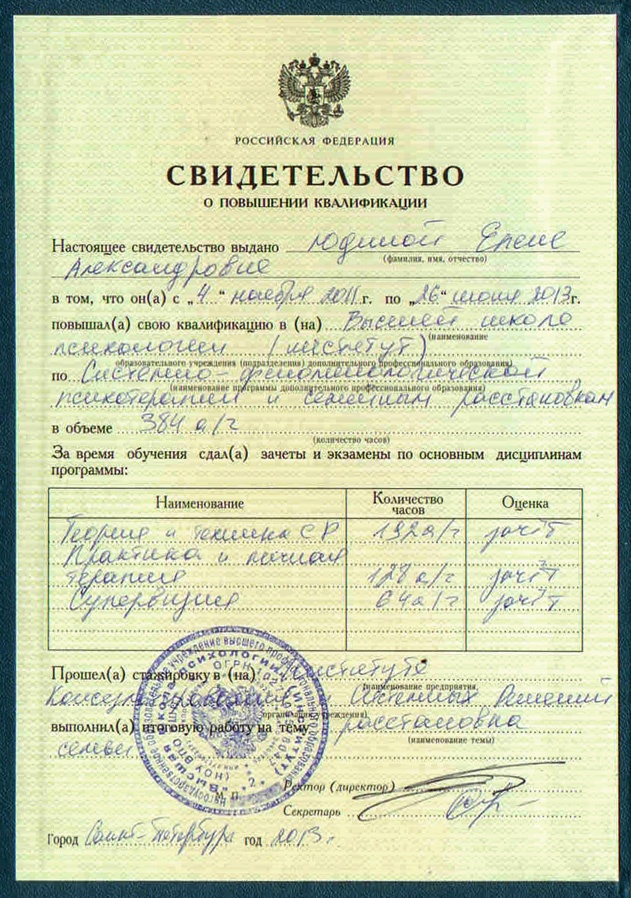 РОССИЙСКАЯ ФЕДЕРАЦИЯ
СВИДЕТЕЛЬСТВО
О ПОВЫШЕНИИ КВАЛИФИКАЦИИ
Настоящее свидетельство выдано Юдиной Елене
(фамилия, имя, отчество)
Александровне
в том, что он(а) с „4“ ноября 2011 г. по „26“ июня 2013 г.
повышал(а) свою квалификацию в (на) Высшей школе
(наименование
психологии (институт)
образовательного учреждения (подразделения) дополнительного профессионального образования)
по Системно-феноменологической
(наименование программы дополнительного профессионального образования)
психотерапии и семейным расстановкам
в объеме 384 а/г
(количество часов)
За время обучения сдал(а) зачеты и экзамены по основным дисциплинам
программы:
Наименование Количество часов Оценка
Теория и техника СР 192 а/г зачёт
Практика и личная
терапия 128 а/г зачёт
Супервизия 64 а/г зачёт
Прошел(а) стажировку в (на) Институте
(наименование предприятия,
Консультирования Системных Решений
организации, учреждения)
выполнил(а) итоговую работу на тему расстановка
(наименование темы)
семьи
Ректор (директор)
М. П.
Секретарь
Город Санкт-Петербург год 2013 г.